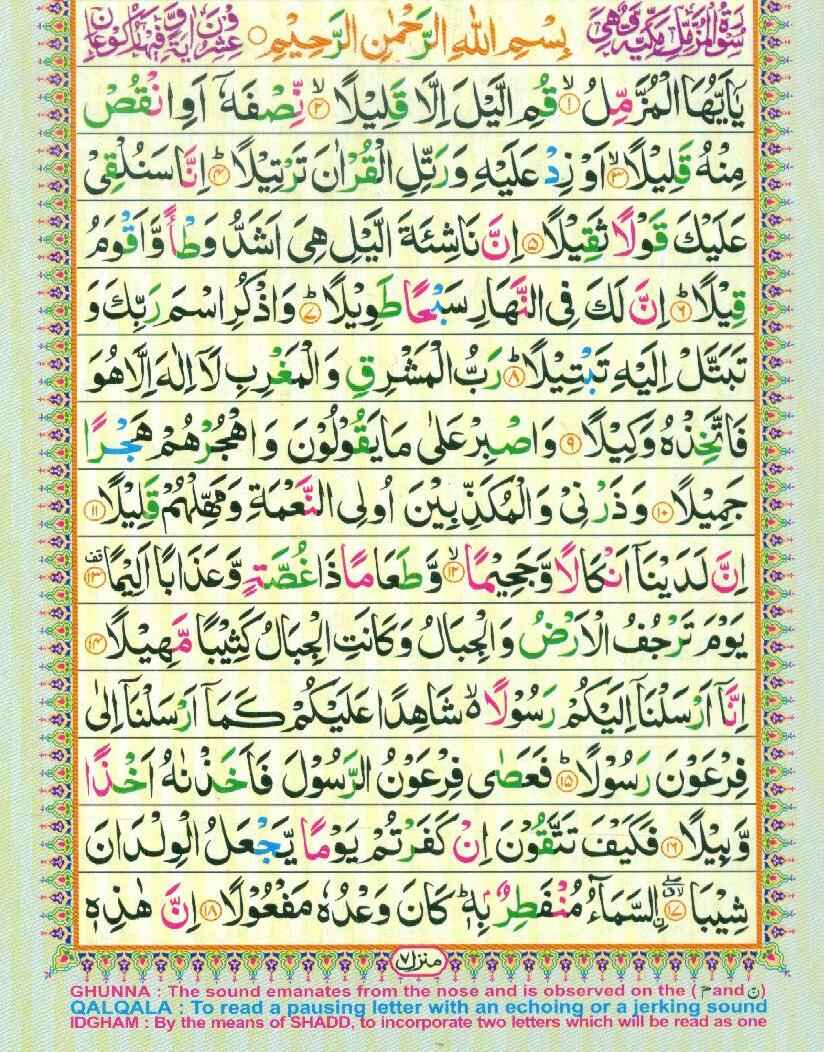 سُوْرَةُ الْمُزَّمِّلِ مَكِّيَّةٌ وَّهِيَ بِسْمِ اللهِ الرَّحْمٰنِ الرَّحِيْمِ عِشْرُوْنَ اٰيَةً وَّفِيْهَا رُكُوْعَانِ
يٰۤاَيُّهَا الْمُزَّمِّلُ ۙ﴿۱﴾ قُمِ الَّيْلَ اِلَّا قَلِيْلًا ۙ﴿۲﴾ نِّصْفَهٗۤ اَوِ انْقُصْ
مِنْهُ قَلِيْلًا ۙ﴿۳﴾ اَوْ زِدْ عَلَيْهِ وَرَتِّلِ الْقُرْاٰنَ تَرْتِيْلًا ؕ﴿۴﴾ اِنَّا سَنُلْقِيْ
عَلَيْكَ قَوْلًا ثَقِيْلًا ﴿۵﴾ اِنَّ نَاشِئَةَ الَّيْلِ هِيَ اَشَدُّ وَطْأً وَّاَقْوَمُ
قِيْلًا ؕ﴿۶﴾ اِنَّ لَكَ فِي النَّهَارِ سَبْحًا طَوِيْلًا ؕ﴿۷﴾ وَاذْكُرِ اسْمَ رَبِّكَ وَ
تَبَتَّلْ اِلَيْهِ تَبْتِيْلًا ؕ﴿۸﴾ رَبُّ الْمَشْرِقِ وَالْمَغْرِبِ لَاۤ اِلٰهَ اِلَّا هُوَ
فَاتَّخِذْهُ وَكِيْلًا ﴿۹﴾ وَاصْبِرْ عَلٰى مَا يَقُوْلُوْنَ وَاهْجُرْهُمْ هَجْرًا
جَمِيْلًا ﴿۱۰﴾ وَذَرْنِيْ وَالْمُكَذِّبِيْنَ اُولِي النَّعْمَةِ وَمَهِّلْهُمْ قَلِيْلًا ﴿۱۱﴾
اِنَّ لَدَيْنَاۤ اَنْكَالًا وَّجَحِيْمًا ۙ﴿۱۲﴾ وَّطَعَامًا ذَا غُصَّةٍ وَّعَذَابًا اَلِيْمًا ٭ۗ﴿۱۳﴾
يَوْمَ تَرْجُفُ الْاَرْضُ وَالْجِبَالُ وَكَانَتِ الْجِبَالُ كَثِيْبًا مَّهِيْلًا ﴿۱۴﴾
اِنَّاۤ اَرْسَلْنَاۤ اِلَيْكُمْ رَسُوْلًا ۙ۬ شَاهِدًا عَلَيْكُمْ كَمَاۤ اَرْسَلْنَاۤ اِلٰى
فِرْعَوْنَ رَسُوْلًا ؕ﴿۱۵﴾ فَعَصٰى فِرْعَوْنُ الرَّسُوْلَ فَاَخَذْنٰهُ اَخْذًا
وَّبِيْلًا ﴿۱۶﴾ فَكَيْفَ تَتَّقُوْنَ اِنْ كَفَرْتُمْ يَوْمًا يَّجْعَلُ الْوِلْدَانَ
شِيْبَا ﴿۱۷﴾ اۨلسَّمَآءُ مُنْفَطِرٌۢ بِهٖ ؕ كَانَ وَعْدُهٗ مَفْعُوْلًا ﴿۱۸﴾ اِنَّ هٰذِهٖ
منزل ۷
GHUNNA : The sound emanates from the nose and is observed on the ( م and ن )
QALQALA : To read a pausing letter with an echoing or a jerking sound
IDGHAM : By the means of SHADD, to incorporate two letters which will be read as one